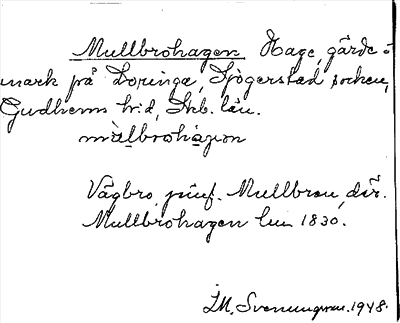 Mullbrohagen Hage, gärde å
mark på Doringa, Sjogerstad socken,
Gudhems h:d, Skb. län.
mùlbrohàgen
Vägbro, jämf. Mullbron, där.
Mullbrohagen 1830.
I.M. Svenungsson. 1948.